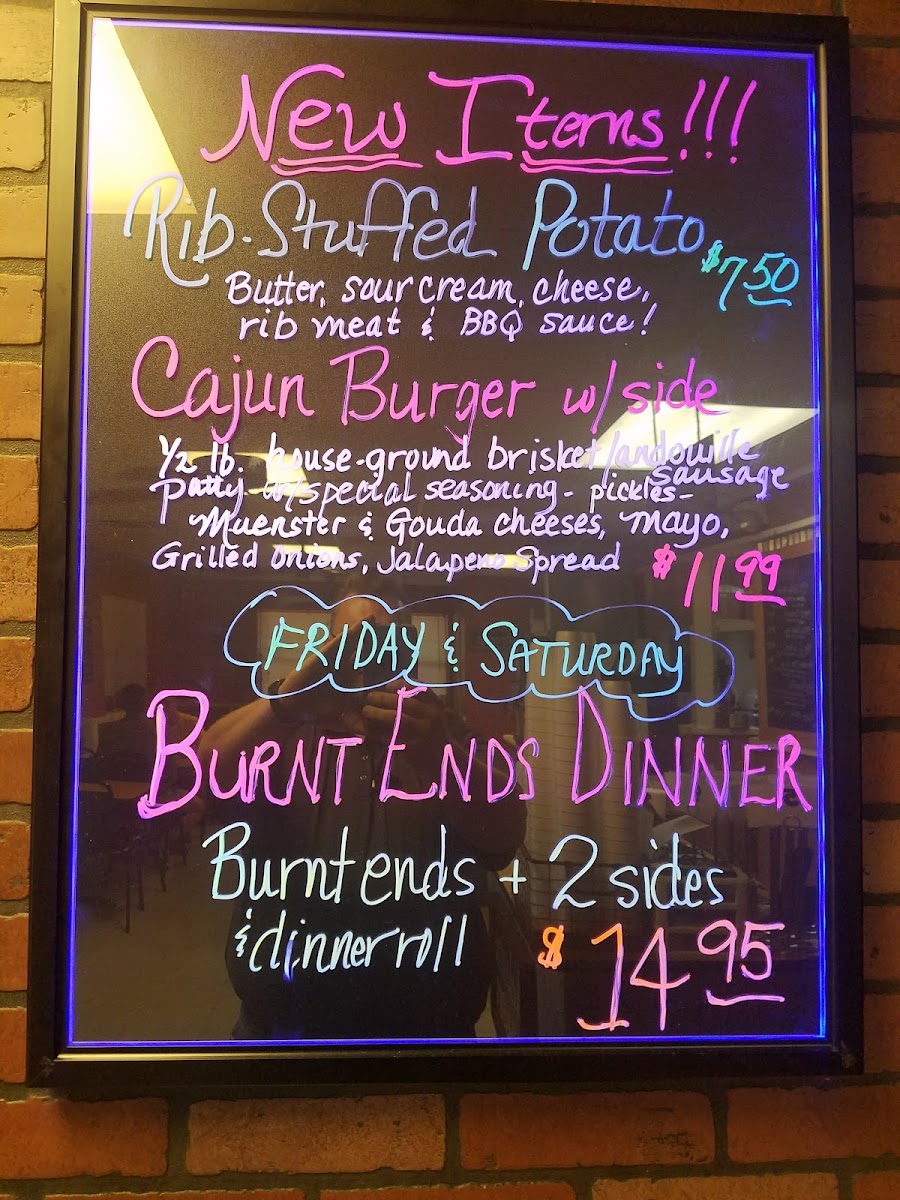 New Items!!!
Rib-Stuffed Potato
$7.50
Butter, sour cream, cheese,
rib meat & BBQ sauce!
Cajun Burger w/ side
1/2 lb. house-ground brisket/andouille
sausage
patty w/special seasoning - pickles -
Muenster & Gouda cheeses, mayo,
Grilled onions, Jalapeno Spread
$11.99
FRIDAY & SATURDAY
BURNT ENDS DINNER
Burnt ends + 2 sides
& dinner roll
$14.95